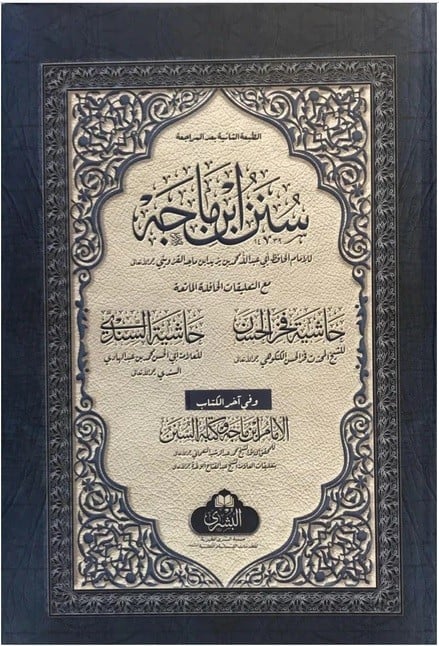 الطبعة الثانية بعد المراجعة
سُنَنُ ابْنِ مَاجَهْ
للإمام الحافظ أبي عبد الله محمد بن يزيد ابن ماجه القزويني رحمه الله تعالى
مع التعليقات الحافلة الماتعة
حاشية فخر الحسن
للشيخ المحدث فخر الحسن الكنكوهي رحمه الله تعالى
حاشية السندي
للعلامة أبي الحسن محمد بن عبد الهادي
السندي رحمه الله تعالى
وفي آخر الكتاب
الإمام ابن ماجه وكتابه السنن
للمحقق الشيخ محمد عبد الرشيد النعماني رحمه الله تعالى
بتعليقات العلامة الشيخ عبد الفتاح أبو غدة رحمه الله تعالى
البشرى